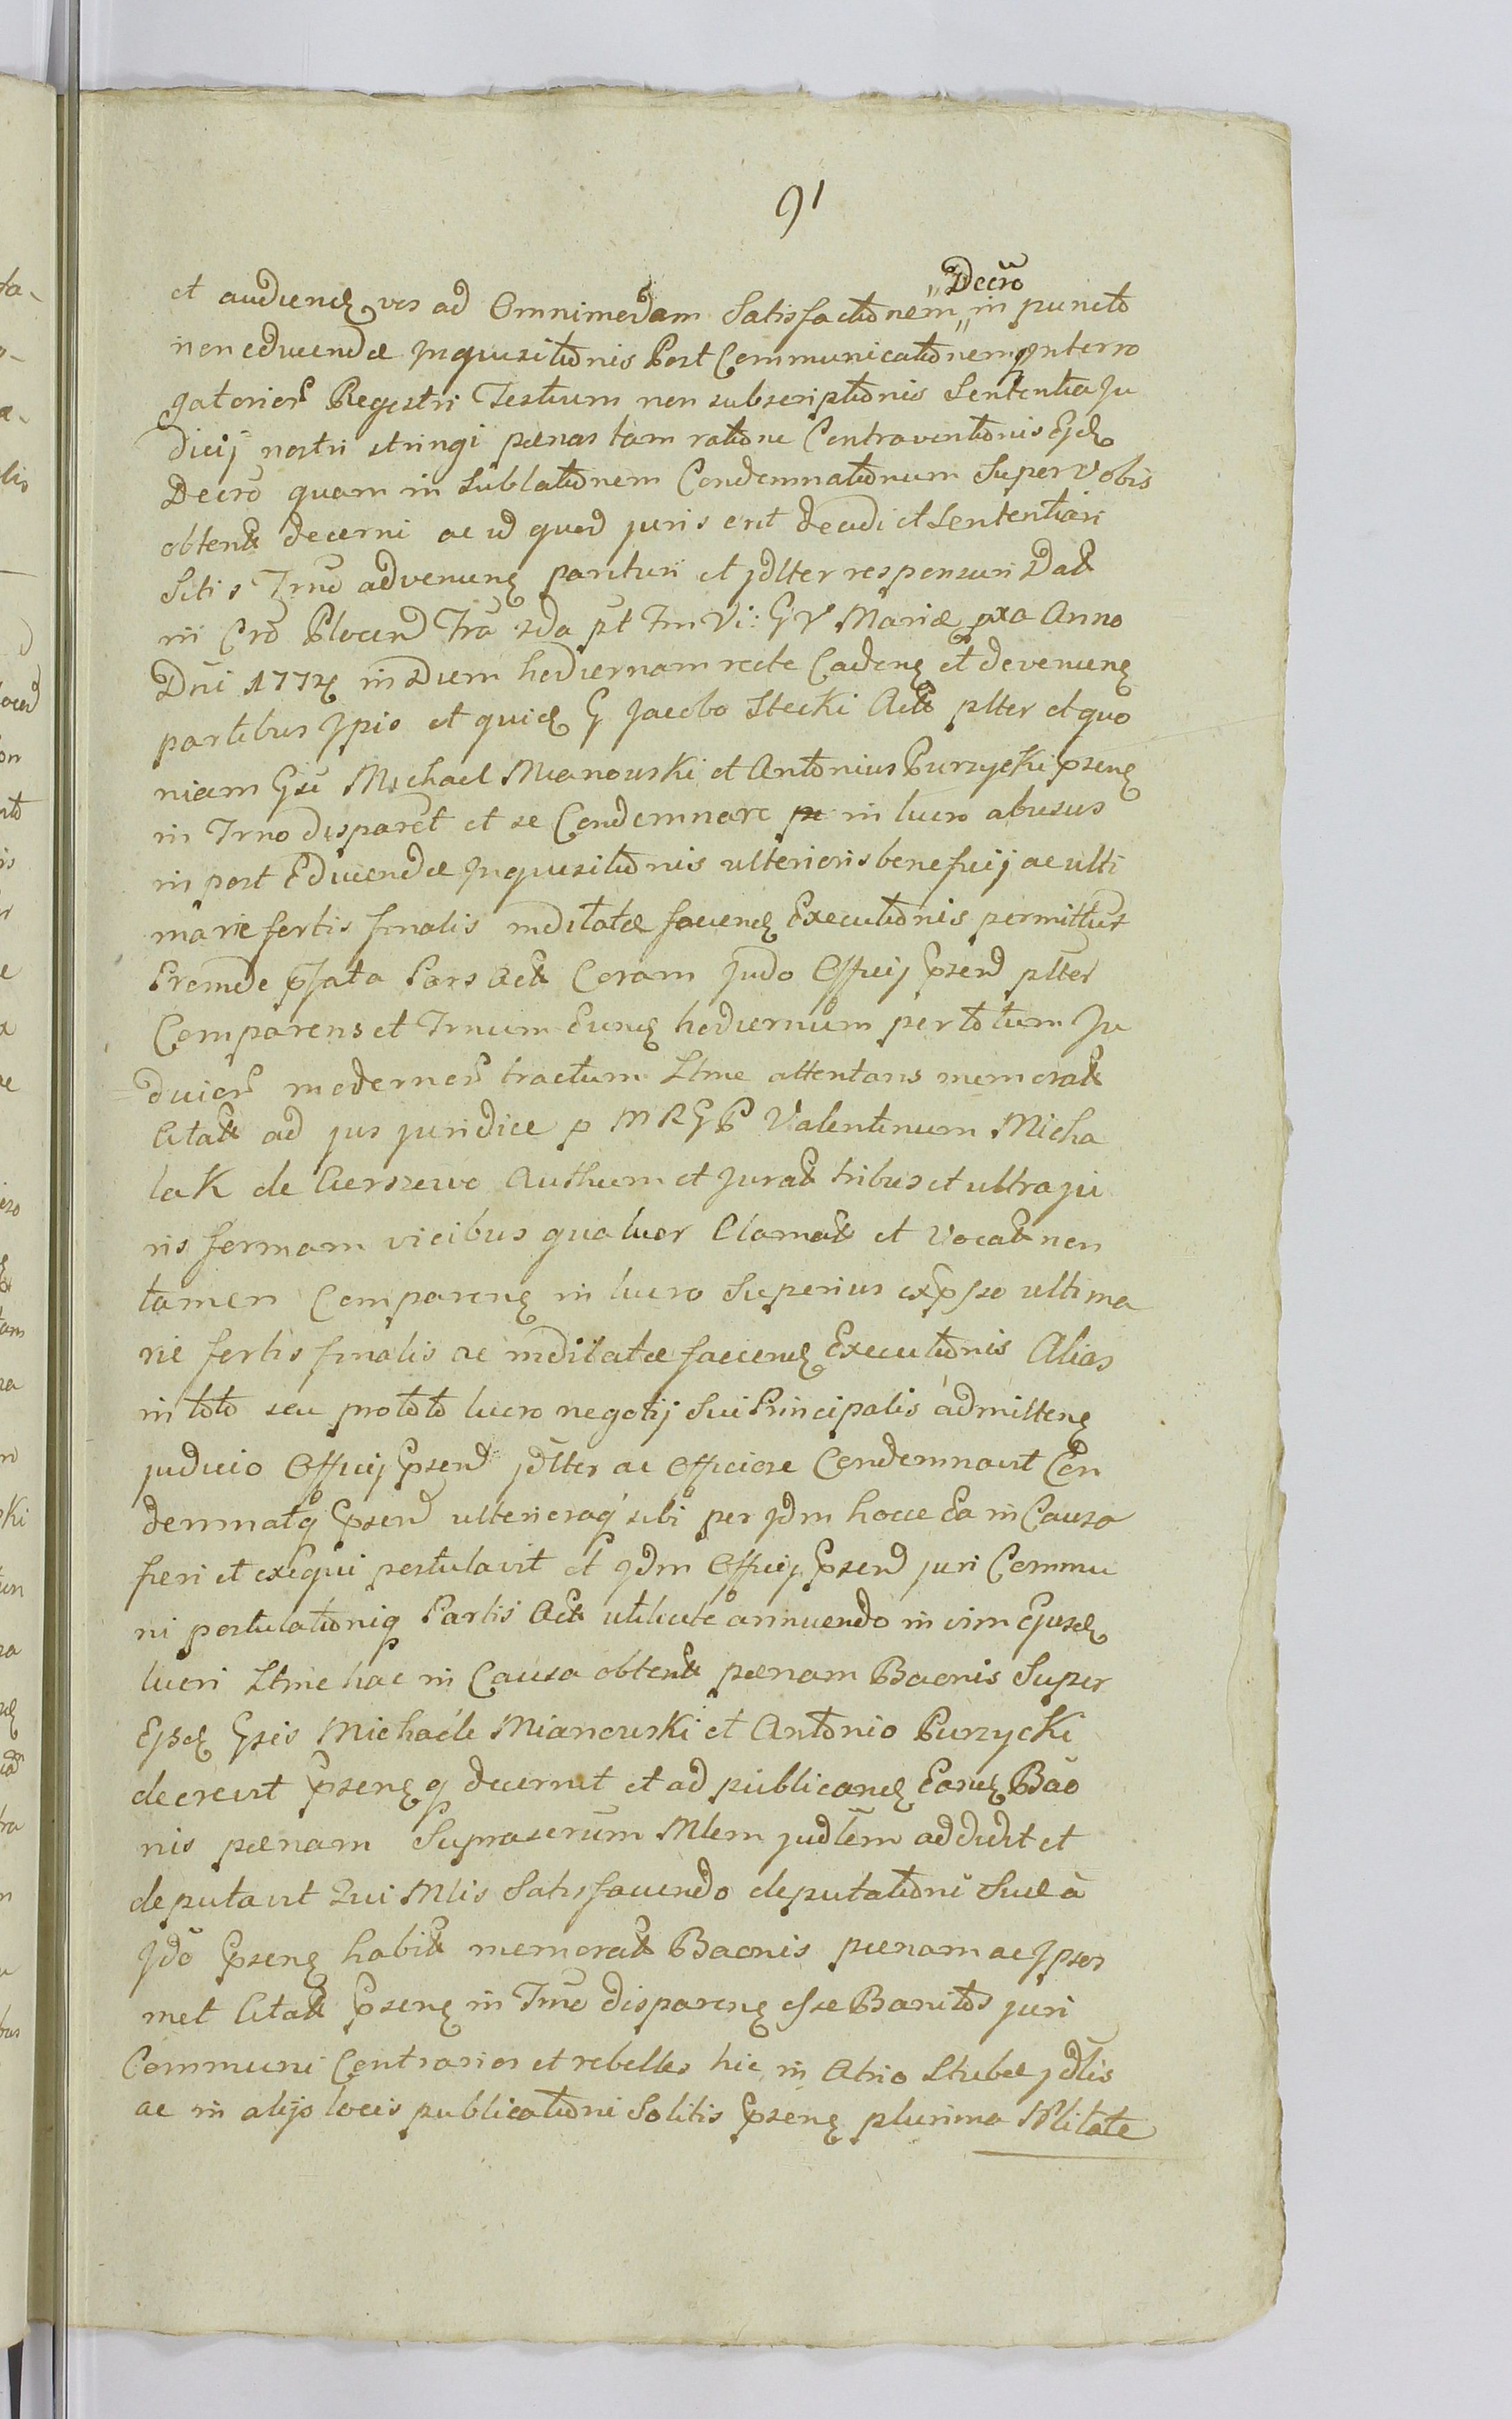 91
Decro
et audiend vos ad Omnimodam Satisfactionem „ „ in puncto
non educendæ Inquisitionis Post Communicationem Interro
gatorior Regestri Testium non subscriptionis Sententia Ju
dicij nostri stringi pænas tam ratione Contraventionis Ejd
Decro quam in Sublationem Condemnationum Super Vobis
obtent decerni ac id quod juris erit decidi et Sententiari
Sitis Trno advenien parituri et jdlter responsuri Dat
in Cro Plocen Fra 2da pt Fm Vi: G V Mariæ pxa Anno
Dni 1774 in Diem hodiernam recte Caden et devenien
partibus Ipis et quid G Jacobo Stecki Act plter et quo
niam Gsi Michael Mianowski et Antonius Purzycki Psen
in Trno disparet et se Condemnare in lucro abusus
in post Educendæ Inquisitionis ulterioris beneficij ac ulti
mariæ fortis finalis inditatæ faciend Executionis permittut
Proinde pfata Pars Act Coram Judo Officij Psen plter
Comparens et Trnum Eund hodiernum per totum Ju
dicior modernor tractum Ltme attentans memorat
Citat ad jus juridice p M R G P Valentinum Micha
lak de Cierszewo Authum et Jurat tribus et ultra ju
ris formam vicibus quatuor Clamat et Vocat non
tamen Comparen in lucro Superius expsso ultima
riæ fortis finalis ac inditatæ faciend Executionis Alias
in toto seu pro toto lucro negotij Sui Principalis admitten
judicio Officij Psen jdlter ac Officiose Condemnavit Con
demnatq Psen ulterioraq sibi per Jdm hocce Ea in Causa
fieri et exequi postulavit et Jdm Officij Psen juri Commu
ni postulationiq Partis Act utilicite annuendo in vim Ejusd
lucri Ltme hac in Causa obtent pænam Baonis Super
Ejsd Gsis Michaele Mianowski et Antonio Purzycki
decrevit Psen q decernit et ad publicand Eand Bao
nis pænam Suprascrium Mlem judlem addidit et
deputavit Qui Mlis Satisfaciendo deputationi Suæ à
Jdo Psen habit memorat Baonis pænam ac Ipsos
met Citat Psen in Trno disparen esse Banitos juri
Communi Contrarios et rebelles hic in Atrio Stubæ jdlis
ac in alijs locis publicationi Solitis Psen plurima Nblitate